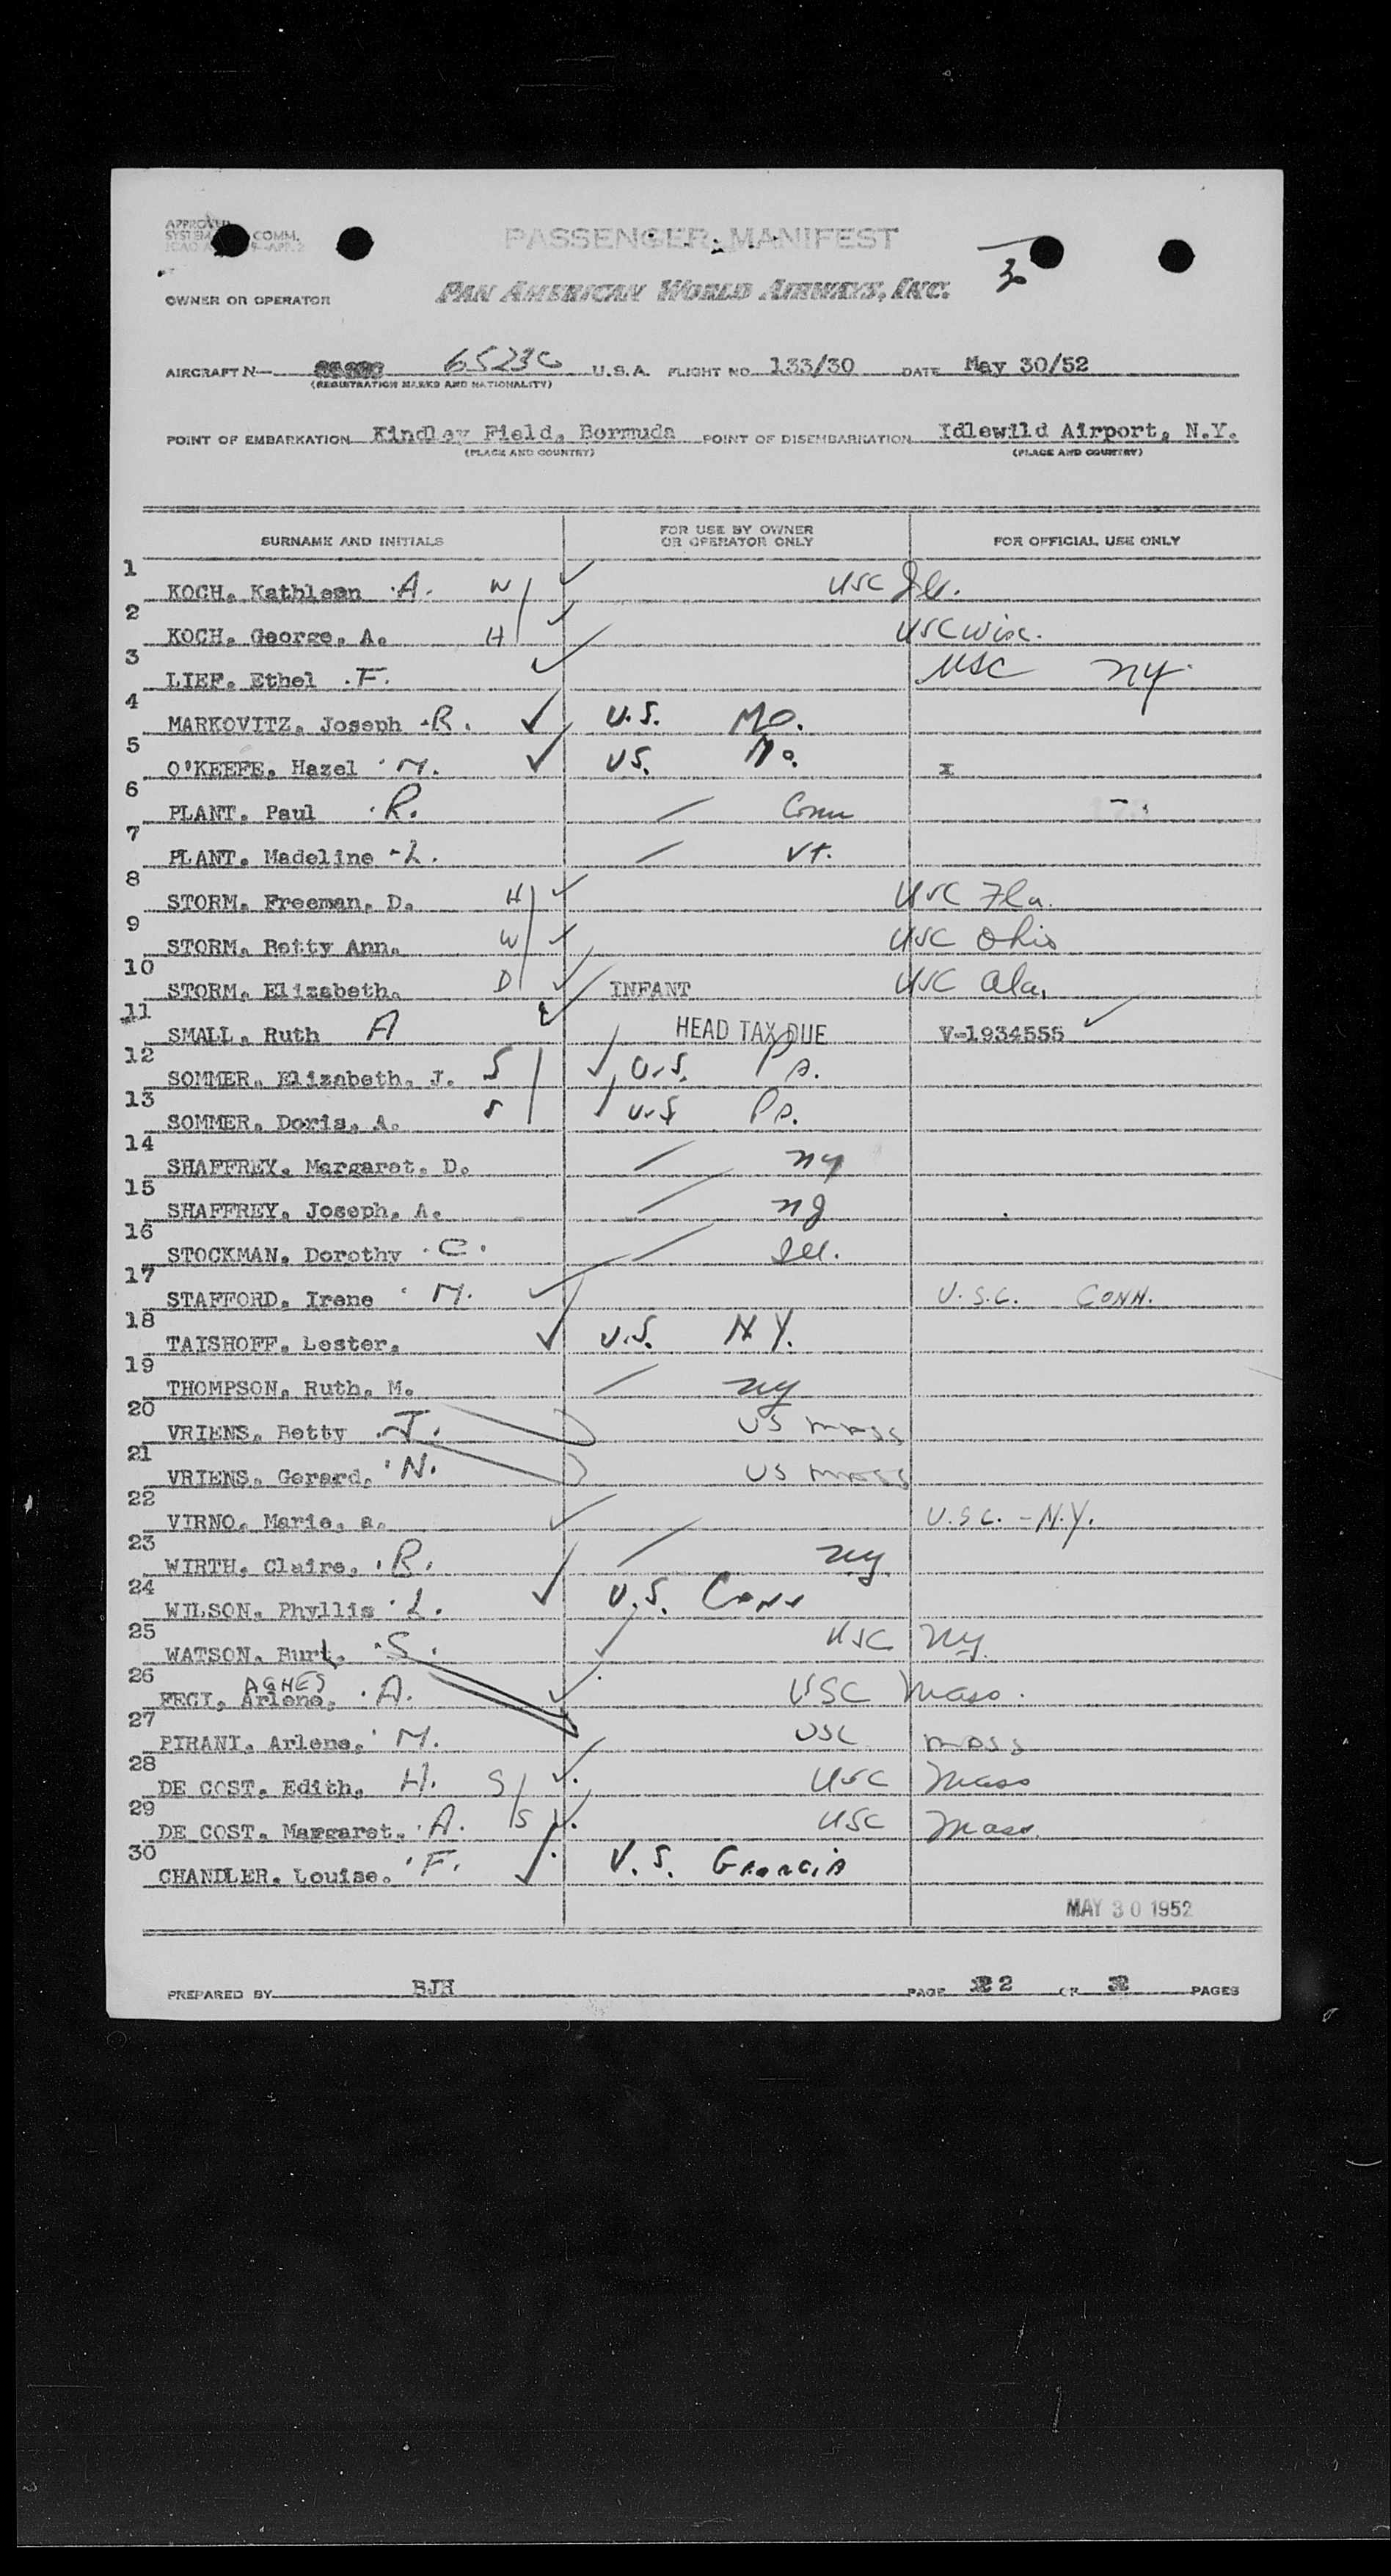 APPROVED
SYSTEM COMM.
PASSENGER MANIFEST
3
OWNER OR OPERATOR
PAN AMERICAN WORLD AIRWAYS, INC.
AIRCRAFT N— 6523C U.S.A. FLIGHT NO. 133/30 DATE May 30/52
(REGISTRATION MARKS AND NATIONALITY)
POINT OF EMBARKATION Kindley Field, Bermuda POINT OF DISEMBARKATION Idlewild Airport, N.Y.
(PLACE AND COUNTRY) (PLACE AND COUNTRY)
SURNAME AND INITIALS FOR USE BY OWNER OR OPERATOR ONLY FOR OFFICIAL USE ONLY
1 KOCH. Kathleen A. W USC Ill.
2 KOCH. George. A. H USC Wisc.
3 LIEF. Ethel F. USC NY
4 MARKOVITZ. Joseph R. U.S. Mo.
5 O'KEEFE. Hazel M. US. Mo. x
6 PLANT. Paul R. Conn
7 PLANT. Madeline L. Vt.
8 STORM. Freeman. D. H USC Fla.
9 STORM. Betty Ann. W USC Ohio
10 STORM. Elizabeth. D INFANT USC Ala.
11 SMALL. Ruth A HEAD TAX DUE V-1934555
12 SOMMER. Elizabeth. J. S U.S. Pa.
13 SOMMER. Doris. A. S U.S Pa.
14 SHAFFREY. Margaret. D. ny
15 SHAFFREY. Joseph. A. ny
16 STOCKMAN. Dorothy C. Ill.
17 STAFFORD. Irene M. U.S.C. CONN.
18 TAISHOFF. Lester. U.S. N.Y.
19 THOMPSON. Ruth. M. ny
20 VRIENS. Betty J. US mass
21 VRIENS. Gerard. N. US mass
22 VIRNO. Marie. a. U.S.C. - N.Y.
23 WIRTH. Claire. R. ny
24 WILSON. Phyllis L. U.S. Conn
25 WATSON. Burt. S. USC Ny.
AGNES
26 FECI. Arlene. A. USC Mass.
27 PIRANI. Arlene. M. USC mass
28 DE COST. Edith. H. S USC Mass
29 DE COST. Margaret. A. S USC Mass.
30 CHANDLER. Louise. F. U.S. Georgia
MAY 30 1952
PREPARED BY BJH PAGE 2 OF PAGES